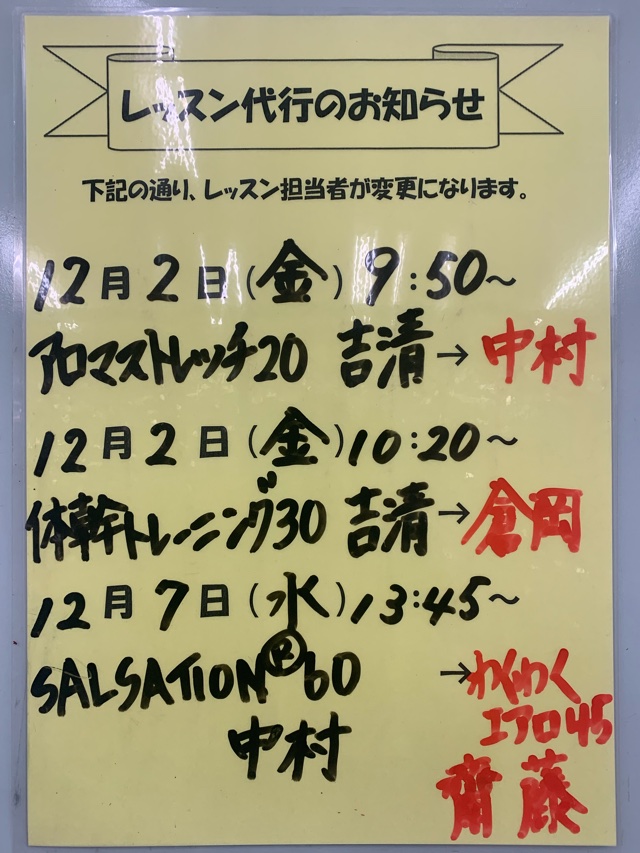 レッスン代行のお知らせ
下記の通り、レッスン担当者が変更になります。
12月2日(金)9:50~
アロマストレッチ20 吉清→中村
12月2日(金)10:20~
体幹トレーニング30 吉清→倉岡
12月7日(水)13:45~
SALSATION®60 →わくわく
エアロ45
中村
齊藤